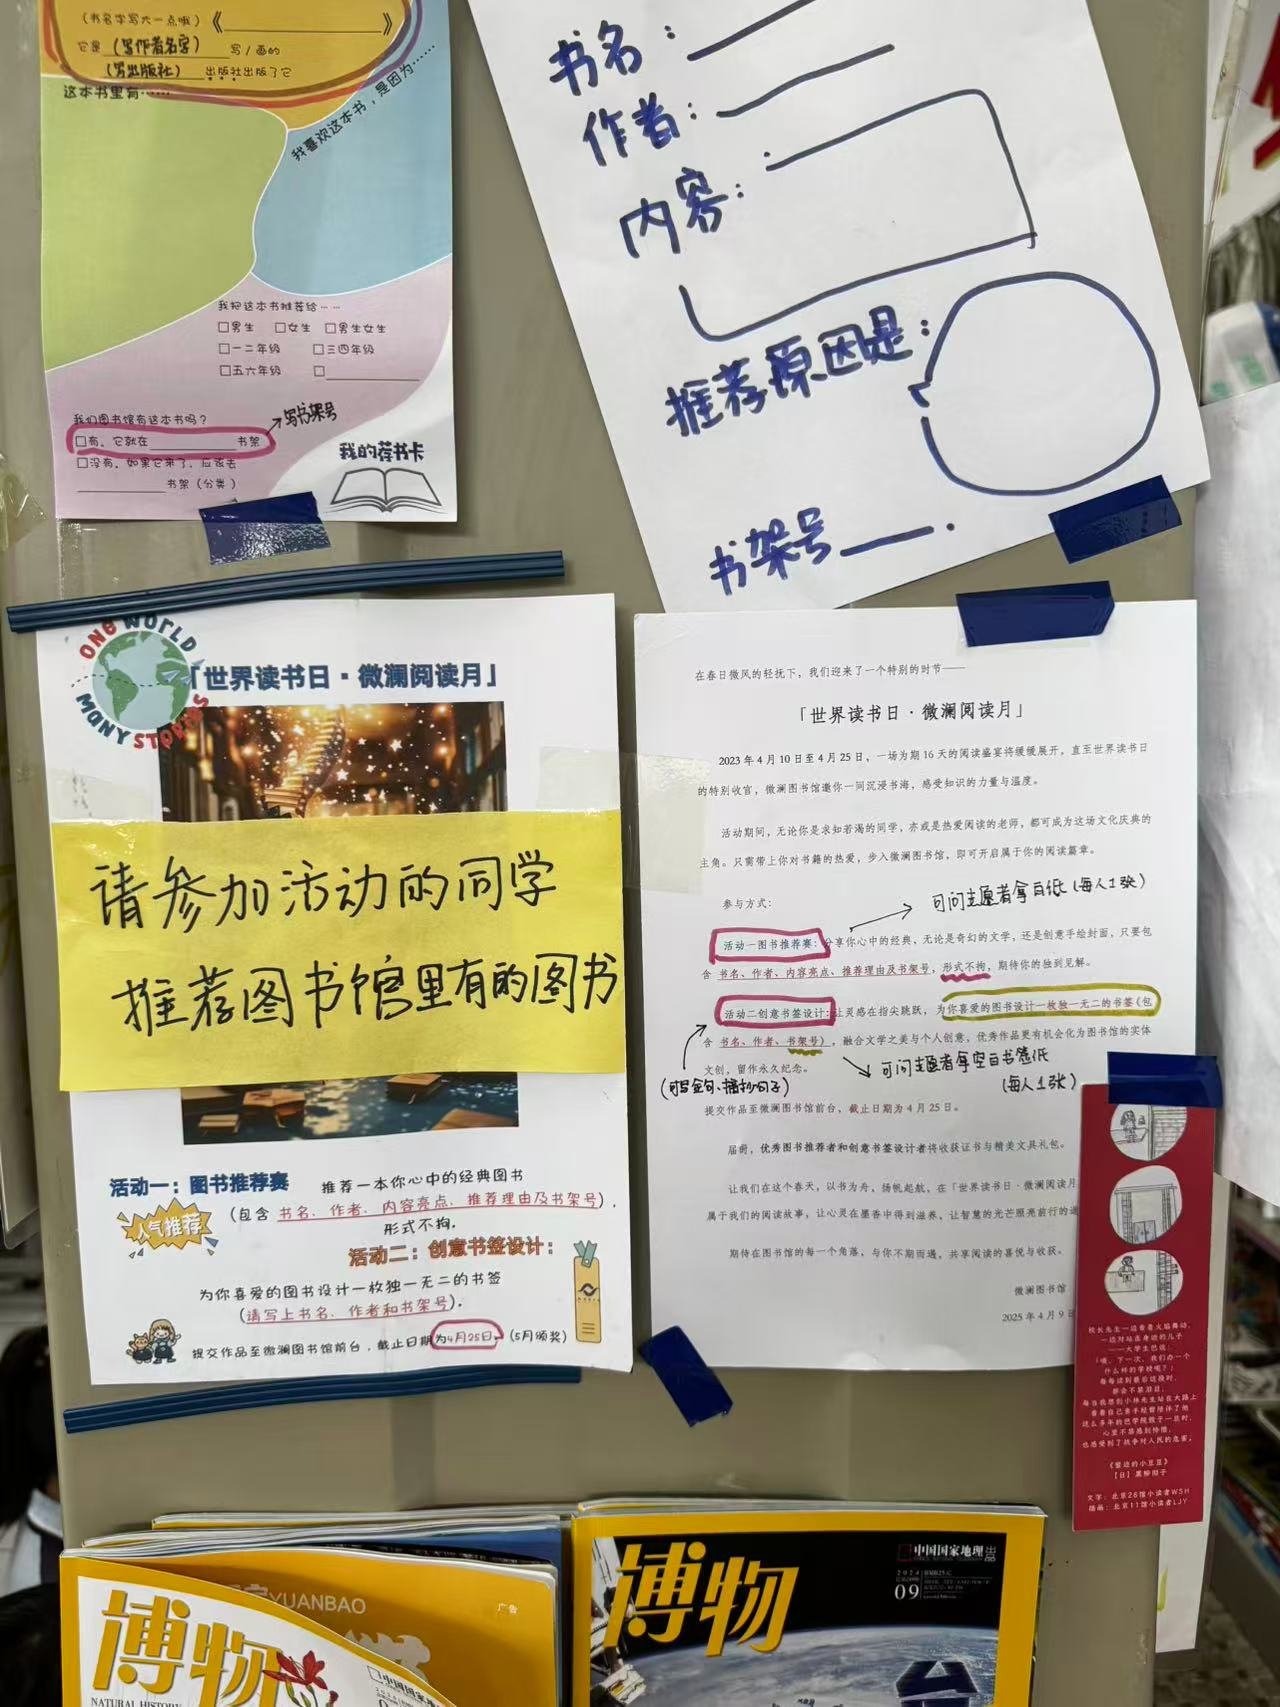 （书名字写大一点哦）《 》
它是（写作者名字）写/画的
（写出版社）出版社出版了它
这本书里有……
我喜欢这本书，是因为……
我把这本书推荐给……
□男生 □女生 □男生女生
□一二年级 □三四年级
□五六年级 □
我们图书馆有这本书吗？
□有，它就在 书架
写书架号
□没有，如果它来了，应该去
书架（分类）
我的荐书卡
书名：
作者：
内容：
推荐原因是：
书架号
ONE WORLD
MANY STORIES
「世界读书日·微澜阅读月」
请参加活动的同学
推荐图书馆里有的图书
活动一：图书推荐赛 推荐一本你心中的经典图书
人气推荐
（包含 书名、作者、内容亮点、推荐理由及书架号），
形式不拘。
活动二：创意书签设计：
为你喜爱的图书设计一枚独一无二的书签
（请写上书名、作者和书架号）。
提交作品至微澜图书馆前台，截止日期为4月25日。（5月颁奖）
在春日微风的轻抚下，我们迎来了一个特别的时节——
「世界读书日·微澜阅读月」
2023年4月10日至4月25日，一场为期16天的阅读盛宴将缓缓展开，直至世界读书日
的特别收官，微澜图书馆邀你一同沉浸书海，感受知识的力量与温度。
活动期间，无论你是求知若渴的同学，亦或是热爱阅读的老师，都可成为这场文化庆典的
主角。只需带上你对书籍的热爱，步入微澜图书馆，即可开启属于你的阅读篇章。
参与方式：
可问志愿者拿白纸（每人1张）
活动一图书推荐赛：分享你心中的经典，无论是奇幻的文学，还是创意手绘封面，只要包
含 书名、作者、内容亮点、推荐理由及书架号，形式不拘，期待你的独到见解。
活动二创意书签设计：让灵感在指尖跳跃，为你喜爱的图书设计一枚独一无二的书签（包
含 书名、作者、书架号），融合文学之美与个人创意，优秀作品更有机会化为图书馆的实体
文创，留作永久纪念。
可问志愿者拿空白书签纸
（每人1张）
（可写金句、摘抄句子）
提交作品至微澜图书馆前台，截止日期为4月25日。
届时，优秀图书推荐者和创意书签设计者将收获证书与精美文具礼包。
让我们在这个春天，以书为舟，扬帆起航，在「世界读书日·微澜阅读月
属于我们的阅读故事，让心灵在墨香中得到滋养，让智慧的光芒照亮前行的道
期待在图书馆的每一个角落，与你不期而遇，共享阅读的喜悦与收获。
微澜图书馆
2025年4月9日
校长先生一边看着火焰舞动，
一边对站在身边的儿子
——大学生巴说：
「喂，下一次，我们办一个
什么样的学校呢？」
每每读到最后这段时，
都会不禁泪目。
每当我想到小林先生站在大路上
看着自己亲手经营陪伴了他
这么多年的巴学院毁于一旦时，
心里不禁感到怜惜，
也感受到了战争对人民的危害。
《窗边的小豆豆》
【日】黑柳彻子
文字：北京26馆小读者WSH
插画：北京11馆小读者LJY
YUANBAO
广告
博物
NATURAL HISTORY
中国国家地理
博物
中国国家地理 出品
2024
09